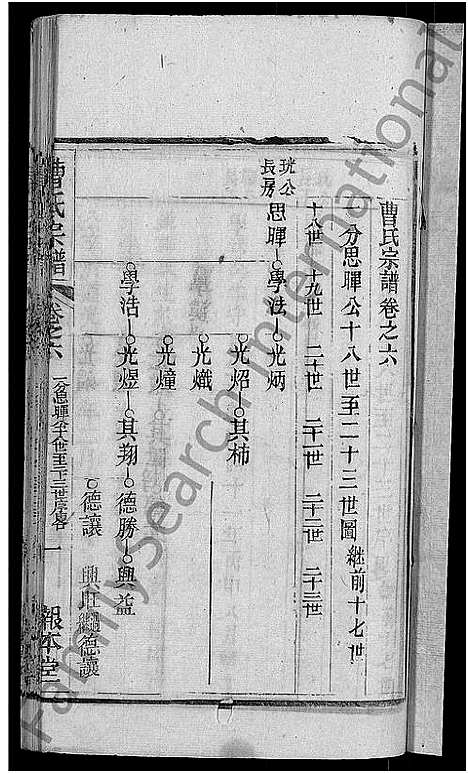 曹氏宗譜卷之六
一分思暉公十八世至二十三世圖 繼前十七世
十八世 十九世 二十世 二十一世 二十二世 二十三世
珖公長房
思暉 學法 光炳
光炤 其柿
光熾
光燑
學浩 光煜 其翔 德勝 興益
德讓 興旺繼德讓
曹氏宗譜 卷之六 一 報本堂
FamilySearch International